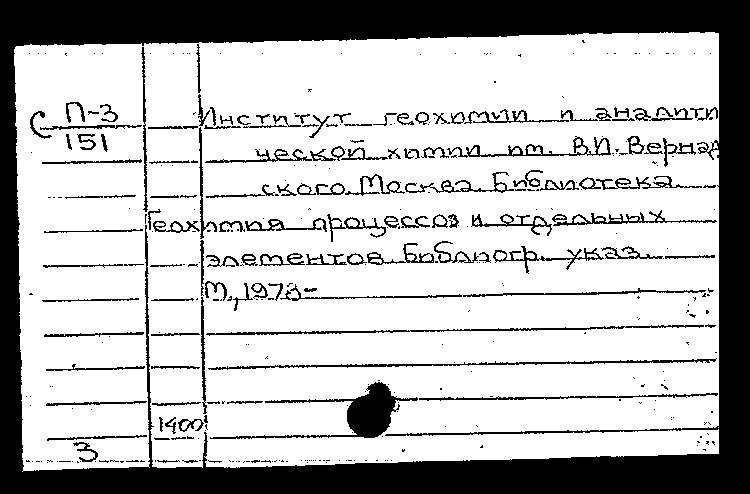 С П-3
151
Институт геохимии и аналити
ческой химии им. В.И. Вернад
ского. Москва. Библиотека.
Геохимия процессов и отдельных
элементов. Библиогр. указ.
М., 1978-
1400
3